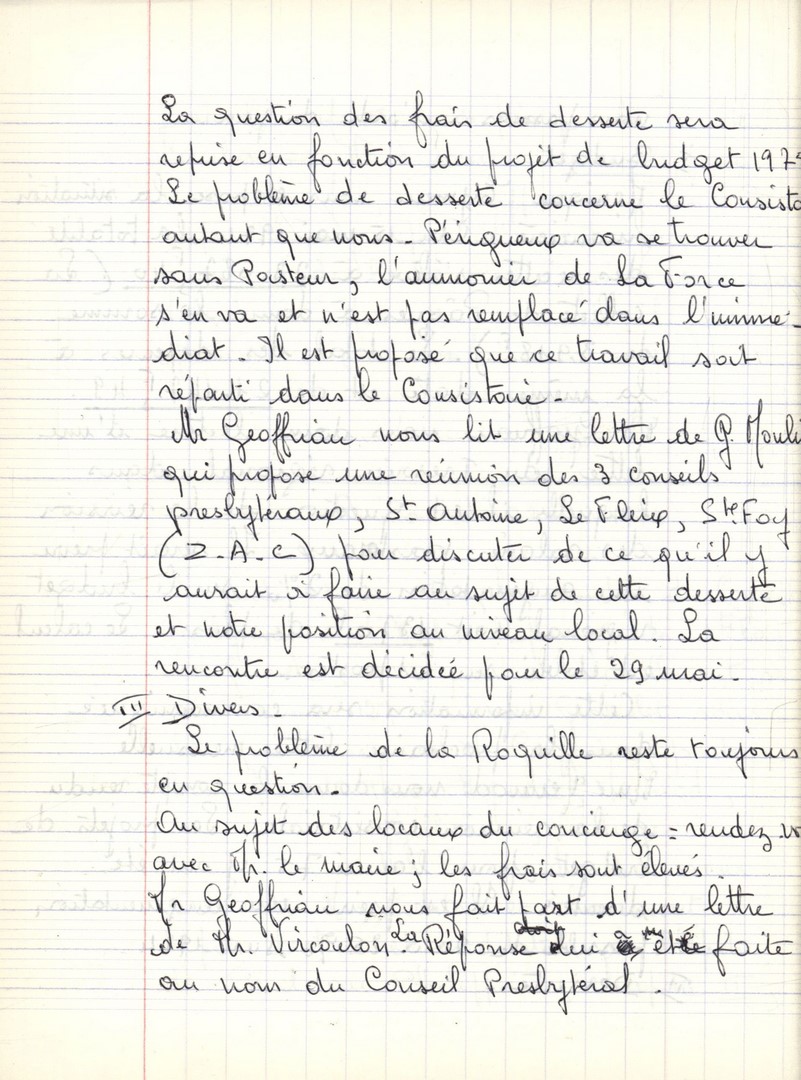 La question des frais de desserte sera
reprise en fonction du projet de budget 197
Le problème de desserte concerne le Consisto
autant que nous - Périgueux va se trouver
sans Pasteur, l'aumonier de La Force
s'en va et n'est pas remplacé dans l'immé-
diat. Il est proposé que ce travail soit
réparti dans le Consistoire -
Mr Geoffriau nous lit une lettre de G. Mouli
qui propose une réunion des 3 conseils
presbytéraux, St Antoine, Le Fleix, Ste Foy
(Z.A.C) pour discuter de ce qu'il y
aurait à faire au sujet de cette desserte
et notre position au niveau local. La
rencontre est décidée pour le 29 mai -
III Divers -
Le problème de la Roquille reste toujours
en question -
Au sujet des locaux du concierge = rendez-vo
avec Mr. le maire ; les frais sont élevés.
Mr Geoffriau nous fait part d'une lettre
de Mr. Vircoulon. La Réponse lui a été faite
au nom du Conseil Presbytéral.